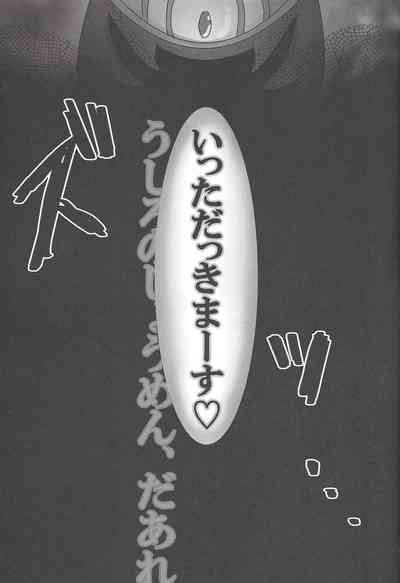 いっただっきまーす♡
うしろのしょうめん、だあれ
ズッ…